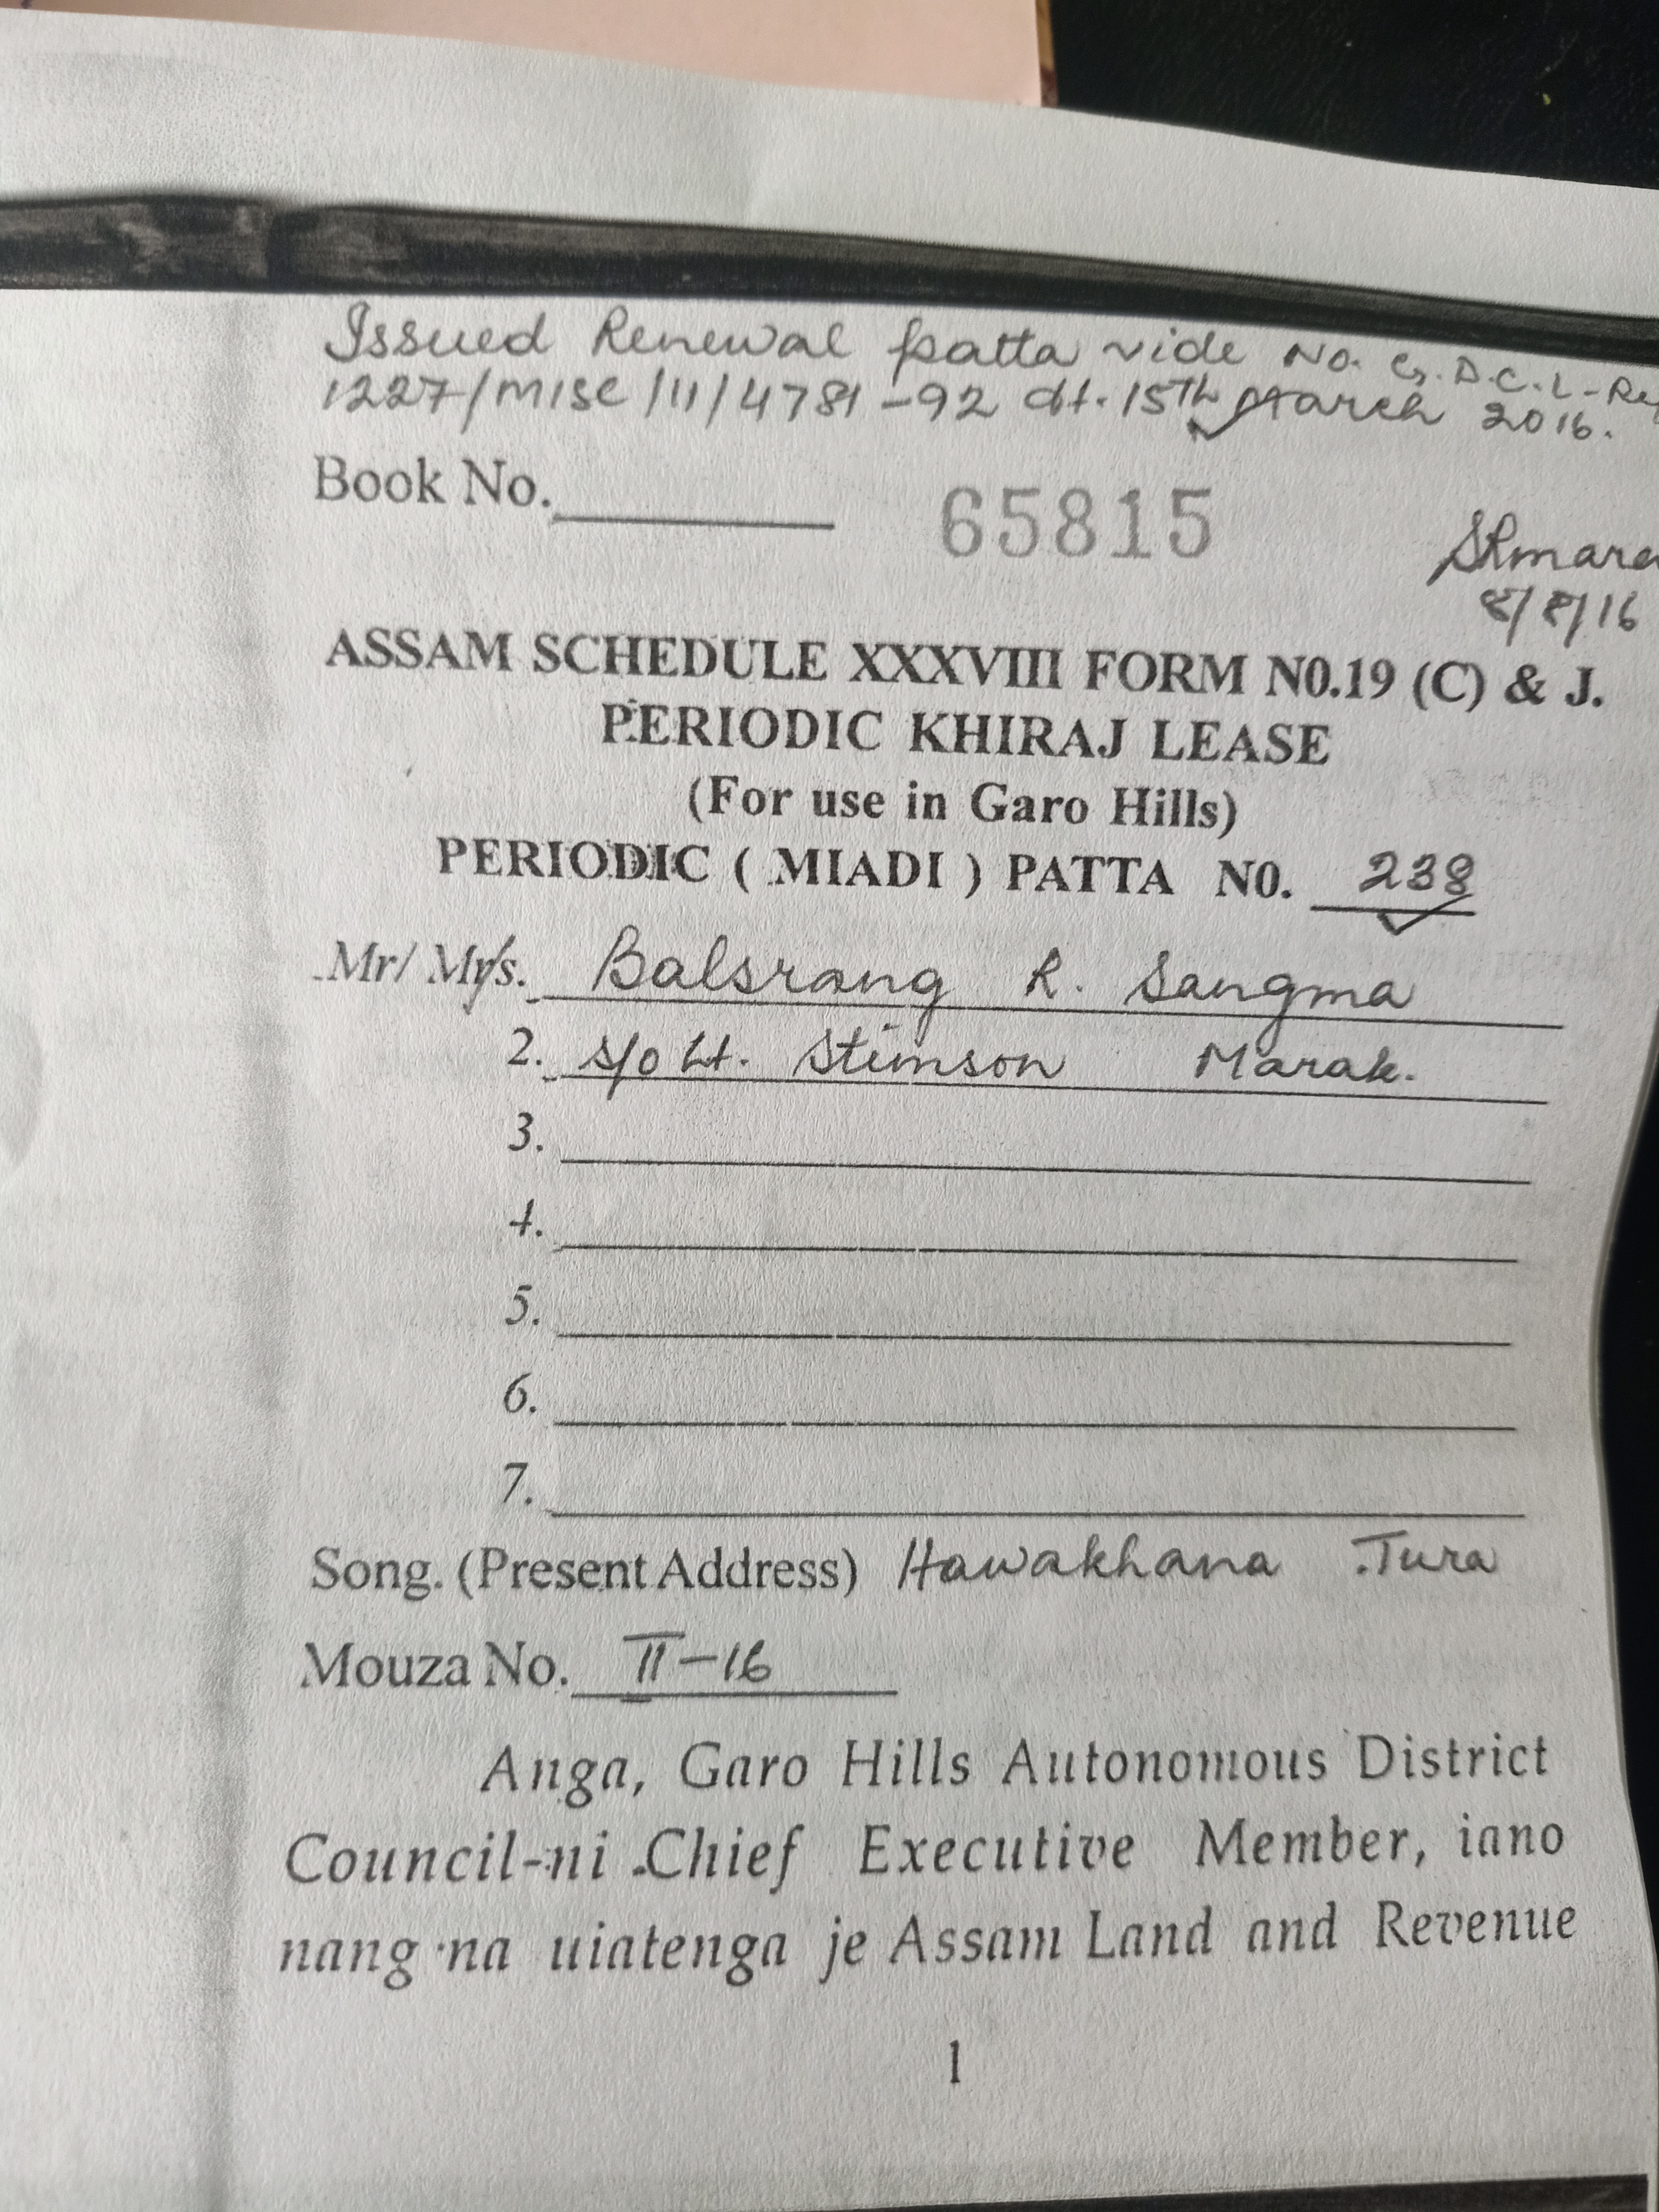 Issued Renewal patta vide No. G.D.C.L-Re
1227/MISC/11/4781-92 dt. 15th March 2016.
Book No. 65815
8/8/16
ASSAM SCHEDULE XXXVIII FORM N0.19 (C) & J.
PERIODIC KHIRAJ LEASE
(For use in Garo Hills)
PERIODIC ( MIADI ) PATTA N0. 238
Mr/ Mrs. Balsrang R. Sangma
2. S/o Lt. Stimson Marak.
3.
4.
5.
6.
7.
Song. (Present Address) Hawakhana Tura
Mouza No. II-16
Anga, Garo Hills Autonomous District
Council-ni Chief Executive Member, iano
nang·na uiatenga je Assam Land and Revenue
1